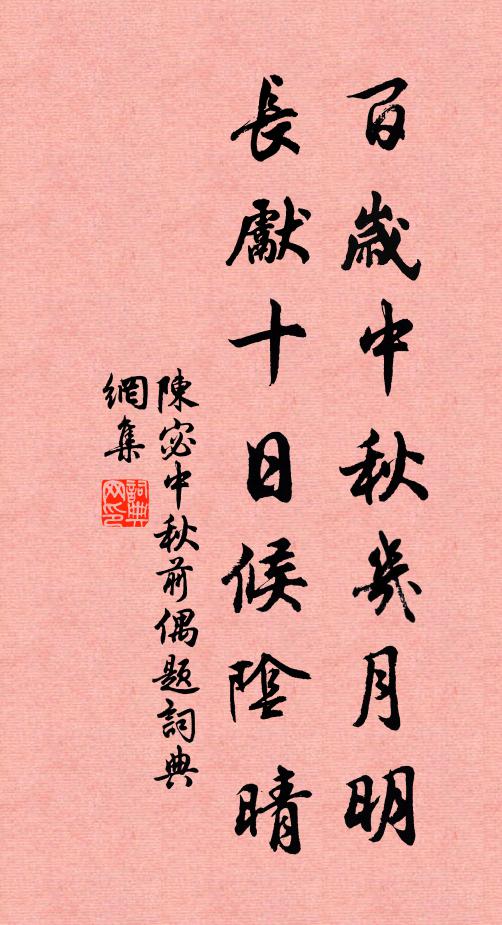 百歲中秋幾月明
長獻十日候陰晴
陳宓中秋前偶題詞典
網集
詞典
网印